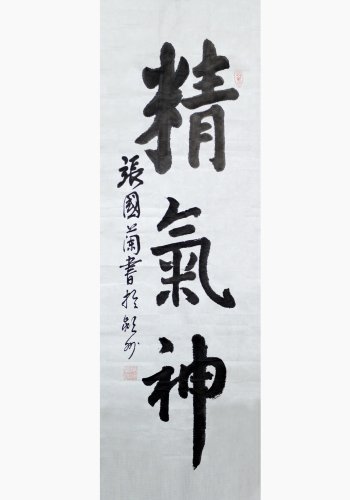 精氣神
張國蘭書於潁州